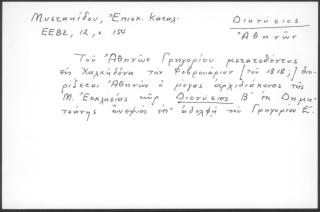 Μυστακίδου, Ἐπισκ. Καταλ.
Διονύσιος
ΕΕΒΣ, 12, σ. 154
Ἀθηνῶν
Τοῦ Ἀθηνῶν Γρηγορίου μετατεθέντος
εἰς Χαλκηδόνα τὸν Φεβρουάριον [τοῦ 1818,] διο-
ρίζεται Ἀθηνῶν ὁ μέγας ἀρχιδιάκονος τῆς
Μ. Ἐκκλησίας κὺρ Διονύσιος Β΄ ἐκ Δημη-
τσάνης ἀνεψιὸς ἐπ' ἀδελφῇ τοῦ Γρηγορίου Ε΄.